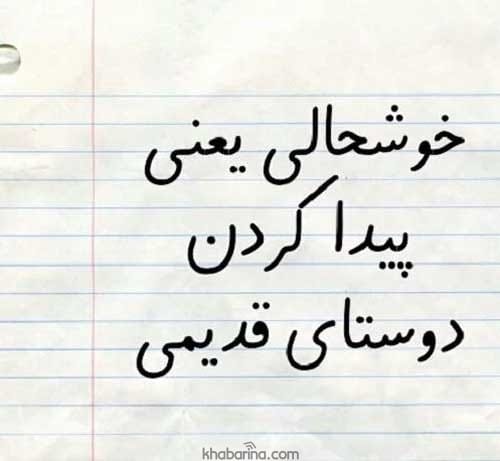 خوشحالی یعنی
پیدا کردن
دوستای قدیمی
khabarina.com